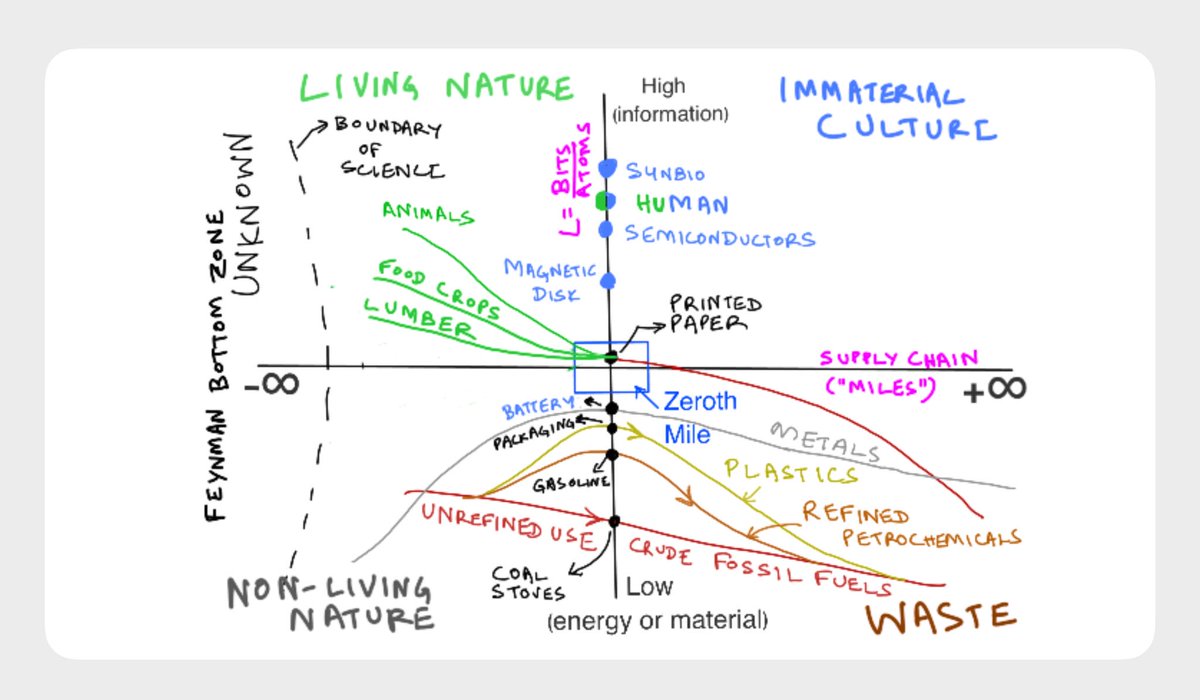 LIVING NATURE
High
(information)
IMMATERIAL
CULTURE
BOUNDARY
OF
SCIENCE
UNKNOWN
FEYNMAN BOTTOM ZONE
L = BITS
ATOMS
SYNBIO
HUMAN
SEMICONDUCTORS
MAGNETIC
DISK
ANIMALS
FOOD CROPS
LUMBER
PRINTED
PAPER
SUPPLY CHAIN
("MILES")
-∞
+∞
Zeroth
Mile
BATTERY
PACKAGING
GASOLINE
METALS
PLASTICS
REFINED
PETROCHEMICALS
UNREFINED USE
CRUDE FOSSIL FUELS
COAL
STOVES
Low
(energy or material)
NON-LIVING
NATURE
WASTE